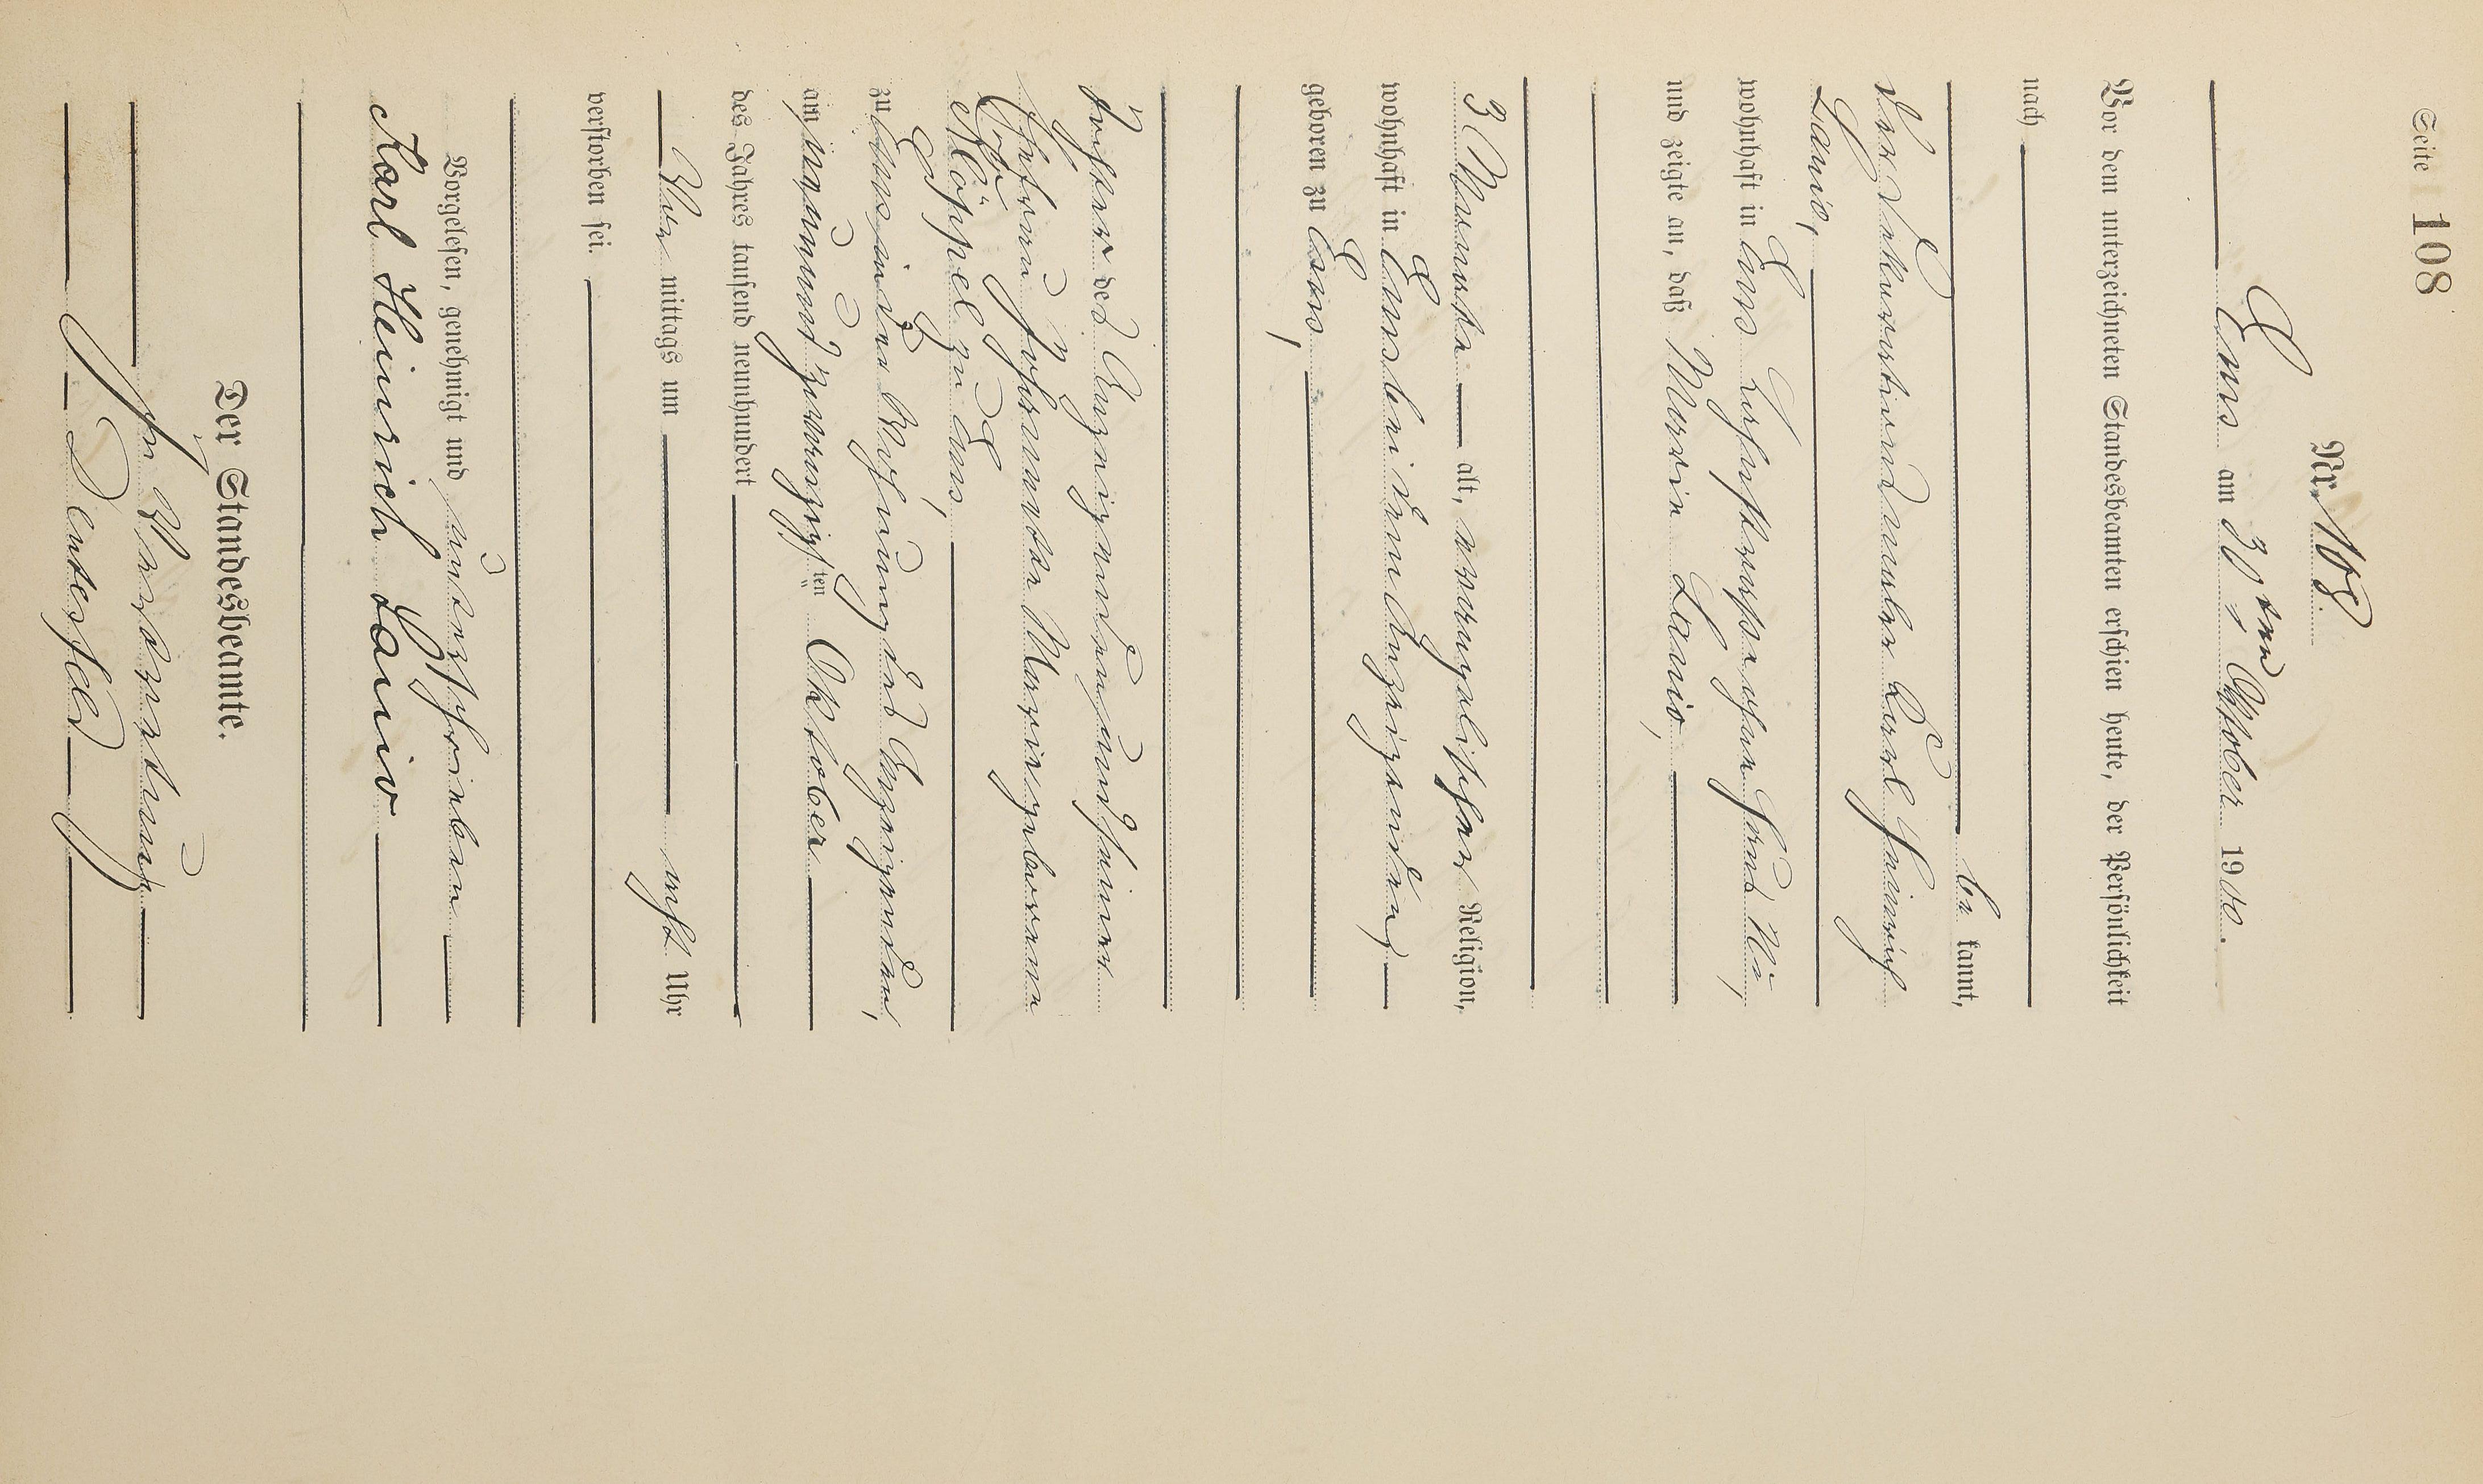 Seite 108
Nr. 108.
Ems am 30ten Oktober 1900.
Vor dem unterzeichneten Standesbeamten erschien heute, der Persönlichkeit
nach
be kannt,
der Dekorationsmaler Karl Heinrich
Lanio,
wohnhaft in Ems
und zeigte an, daß Maria Lanio,
3 Monate alt, evangelischer Religion,
wohnhaft in Ems bei dem Anzeigenden,
geboren zu Ems,
Tochter des Anzeigenden und seiner
Ehefrau Johannette Margarethe geborene
Klöppel zu Ems,
zu Ems in der Wohnung des Anzeigenden,
am neunundzwanzigsten Oktober
des Jahres tausend neunhundert
Vor mittags um acht Uhr
verstorben sei.
Vorgelesen, genehmigt und unterschrieben
Karl Heinrich Lanio
Der Standesbeamte.
In Vertretung